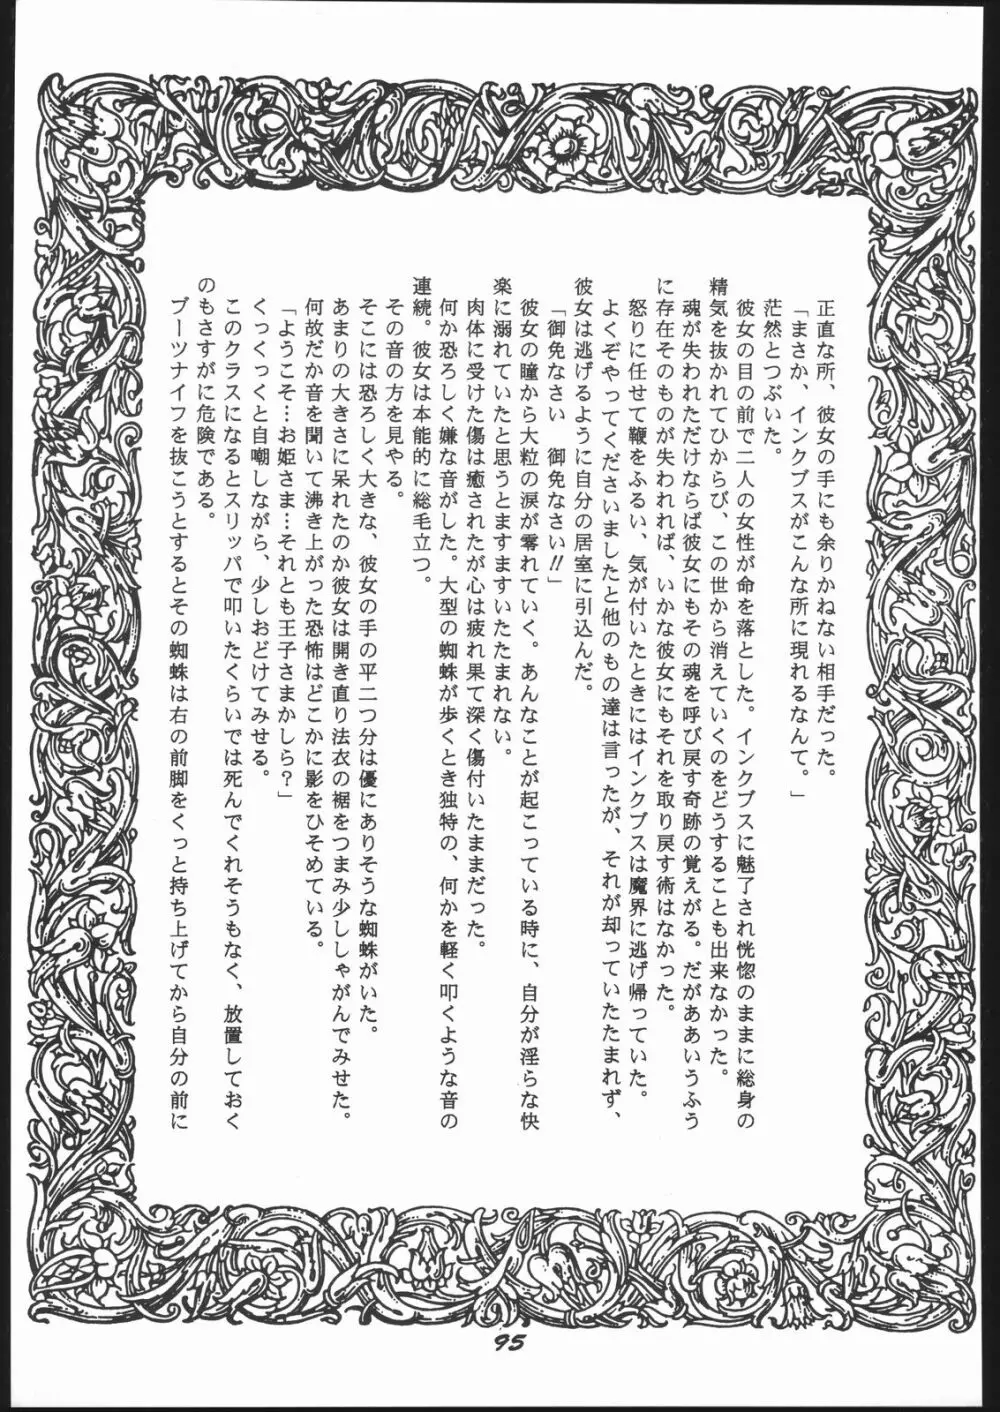 正直な所、彼女の手にも余りかねない相手だった。
「まさか、インクブスがこんな所に現れるなんて。」
茫然とつぶいた。
彼女の目の前で二人の女性が命を落とした。インクブスに魅了され恍惚のままに総身の
精気を抜かれてひからび、この世から消えていくのをどうすることも出来なかった。
魂が失われただけならば彼女にもその魂を呼び戻す奇跡の覚えがる。だがああいうふう
に存在そのものが失われれば、いかな彼女にもそれを取り戻す術はなかった。
怒りに任せて鞭をふるい、気が付いたときにはインクブスは魔界に逃げ帰っていた。
よくぞやってくださいましたと他のもの達は言ったが、それが却っていたたまれず、
彼女は逃げるように自分の居室に引込んだ。
「御免なさい　御免なさい!!」
彼女の瞳から大粒の涙が零れていく。あんなことが起こっている時に、自分が淫らな快
楽に溺れていたと思うとますますいたたまれない。
肉体に受けた傷は癒されたが心は疲れ果て深く傷付いたままだった。
何か恐ろしく嫌な音がした。大型の蜘蛛が歩くとき独特の、何かを軽く叩くような音の
連続。彼女は本能的に総毛立つ。
その音の方を見やる。
そこには恐ろしく大きな、彼女の手の平二つ分は優にありそうな蜘蛛がいた。
あまりの大きさに呆れたのか彼女は開き直り法衣の裾をつまみ少ししゃがんでみせた。
何故だか音を聞いて沸き上がった恐怖はどこかに影をひそめている。
「ようこそ…お姫さま…それとも王子さまかしら？」
くっくっくと自嘲しながら、少しおどけてみせる。
このクラスになるとスリッパで叩いたくらいでは死んでくれそうもなく、放置しておく
のもさすがに危険である。
ブーツナイフを抜こうとするとその蜘蛛は右の前脚をくっと持ち上げてから自分の前に
95